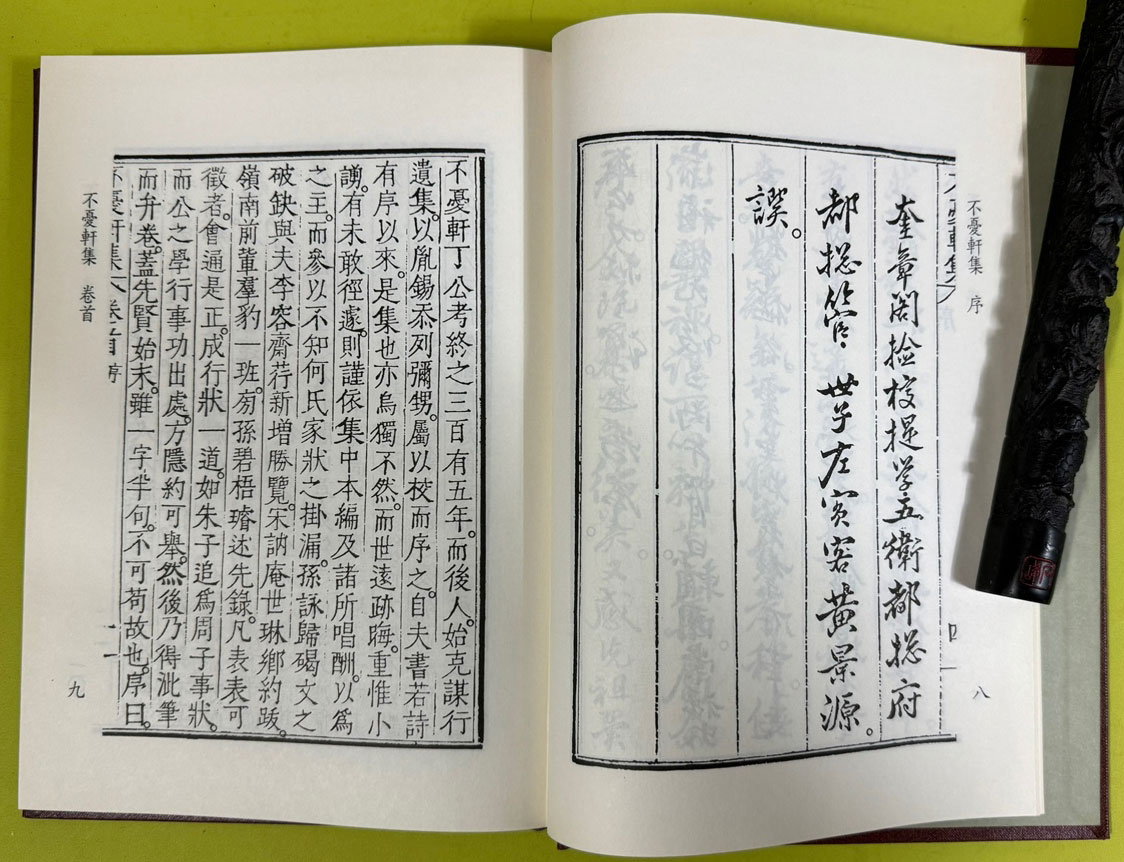 不憂軒集 序
奎章閣捡校提学五衛都捴府
都捴管 世子左賓客黃景源。
譔。
四
八
不憂軒丁公考終之三百有五年。而後人。始克謀行
遺集。以胤錫忝列彌甥。屬以校而序之。自夫書若詩
有序以來。是集也亦烏獨不然。而世遠跡晦。重惟小
謭。有未敢徑遽。則謹依集中本編及諸所唱酬。以爲
之主。而參以不知何氏家狀之掛漏。孫詠歸碣文之
破缺與夫李容齋荇新增勝覽。宋訥庵世琳鄉約跋。
嶺南前輩羣豹一班。旁孫碧梧璿述先錄。凡表表可
徵者。會通是正。成行狀一道。如朱子追爲周子事狀。
而公之學行事功出處。方隱約可舉。然後乃得泚筆
而弁卷。蓋先賢始末。雖一字半句。不可苟故也。序曰。
不憂軒集 卷之首 序
不憂軒集 卷首
九